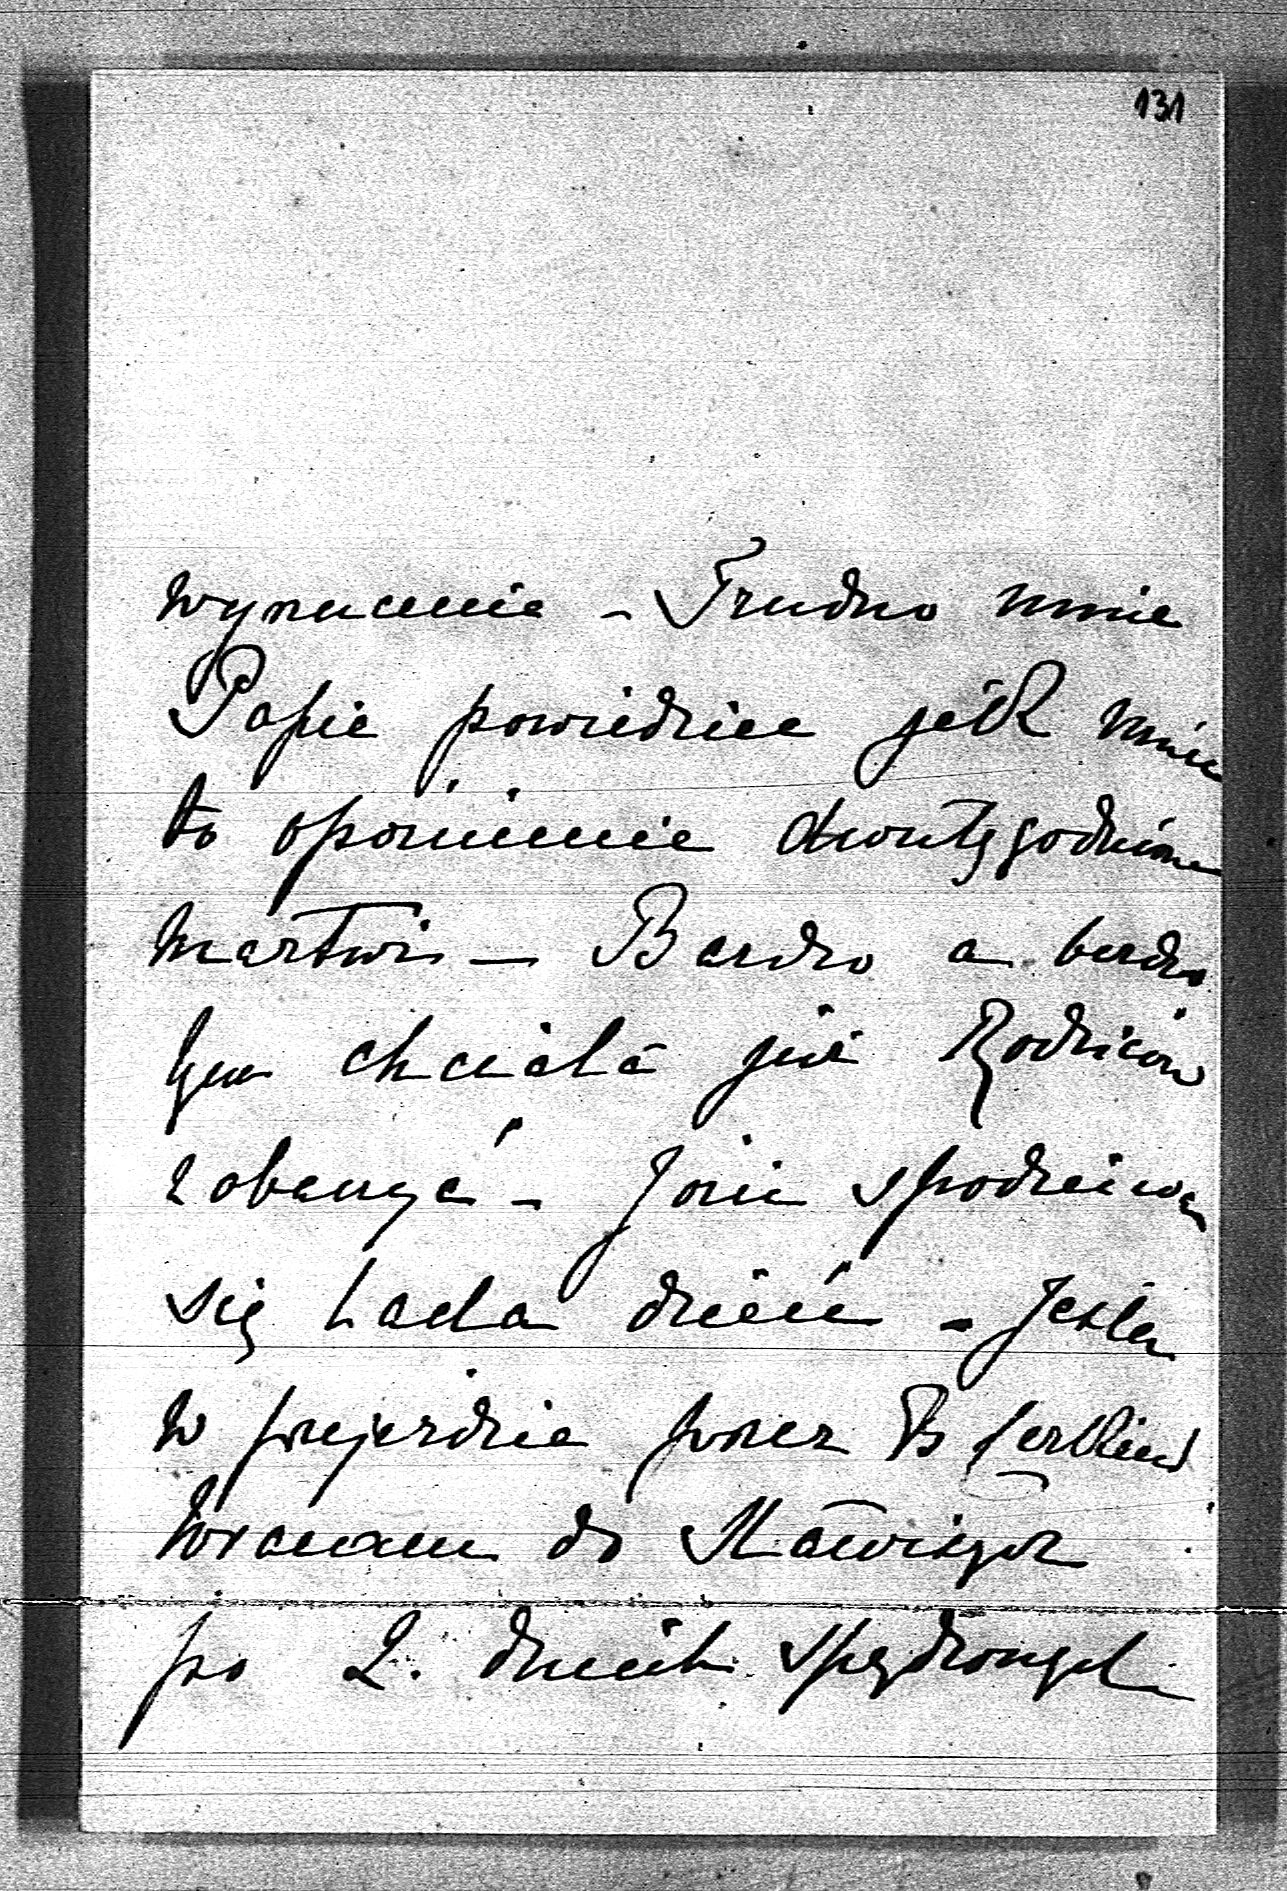 131
wyrzucenie – Trudno mnie
Papie powiedzieć jak mnie
to opóźnienie dwutygodniowe
martwi – Bardzo a bardzo
bym chciała już Rodziców
zobaczyć – Józia spodziewam
się lada dzień – Jestem
w przejeździe przez
Wracam do
po 2. dniach spędzonych